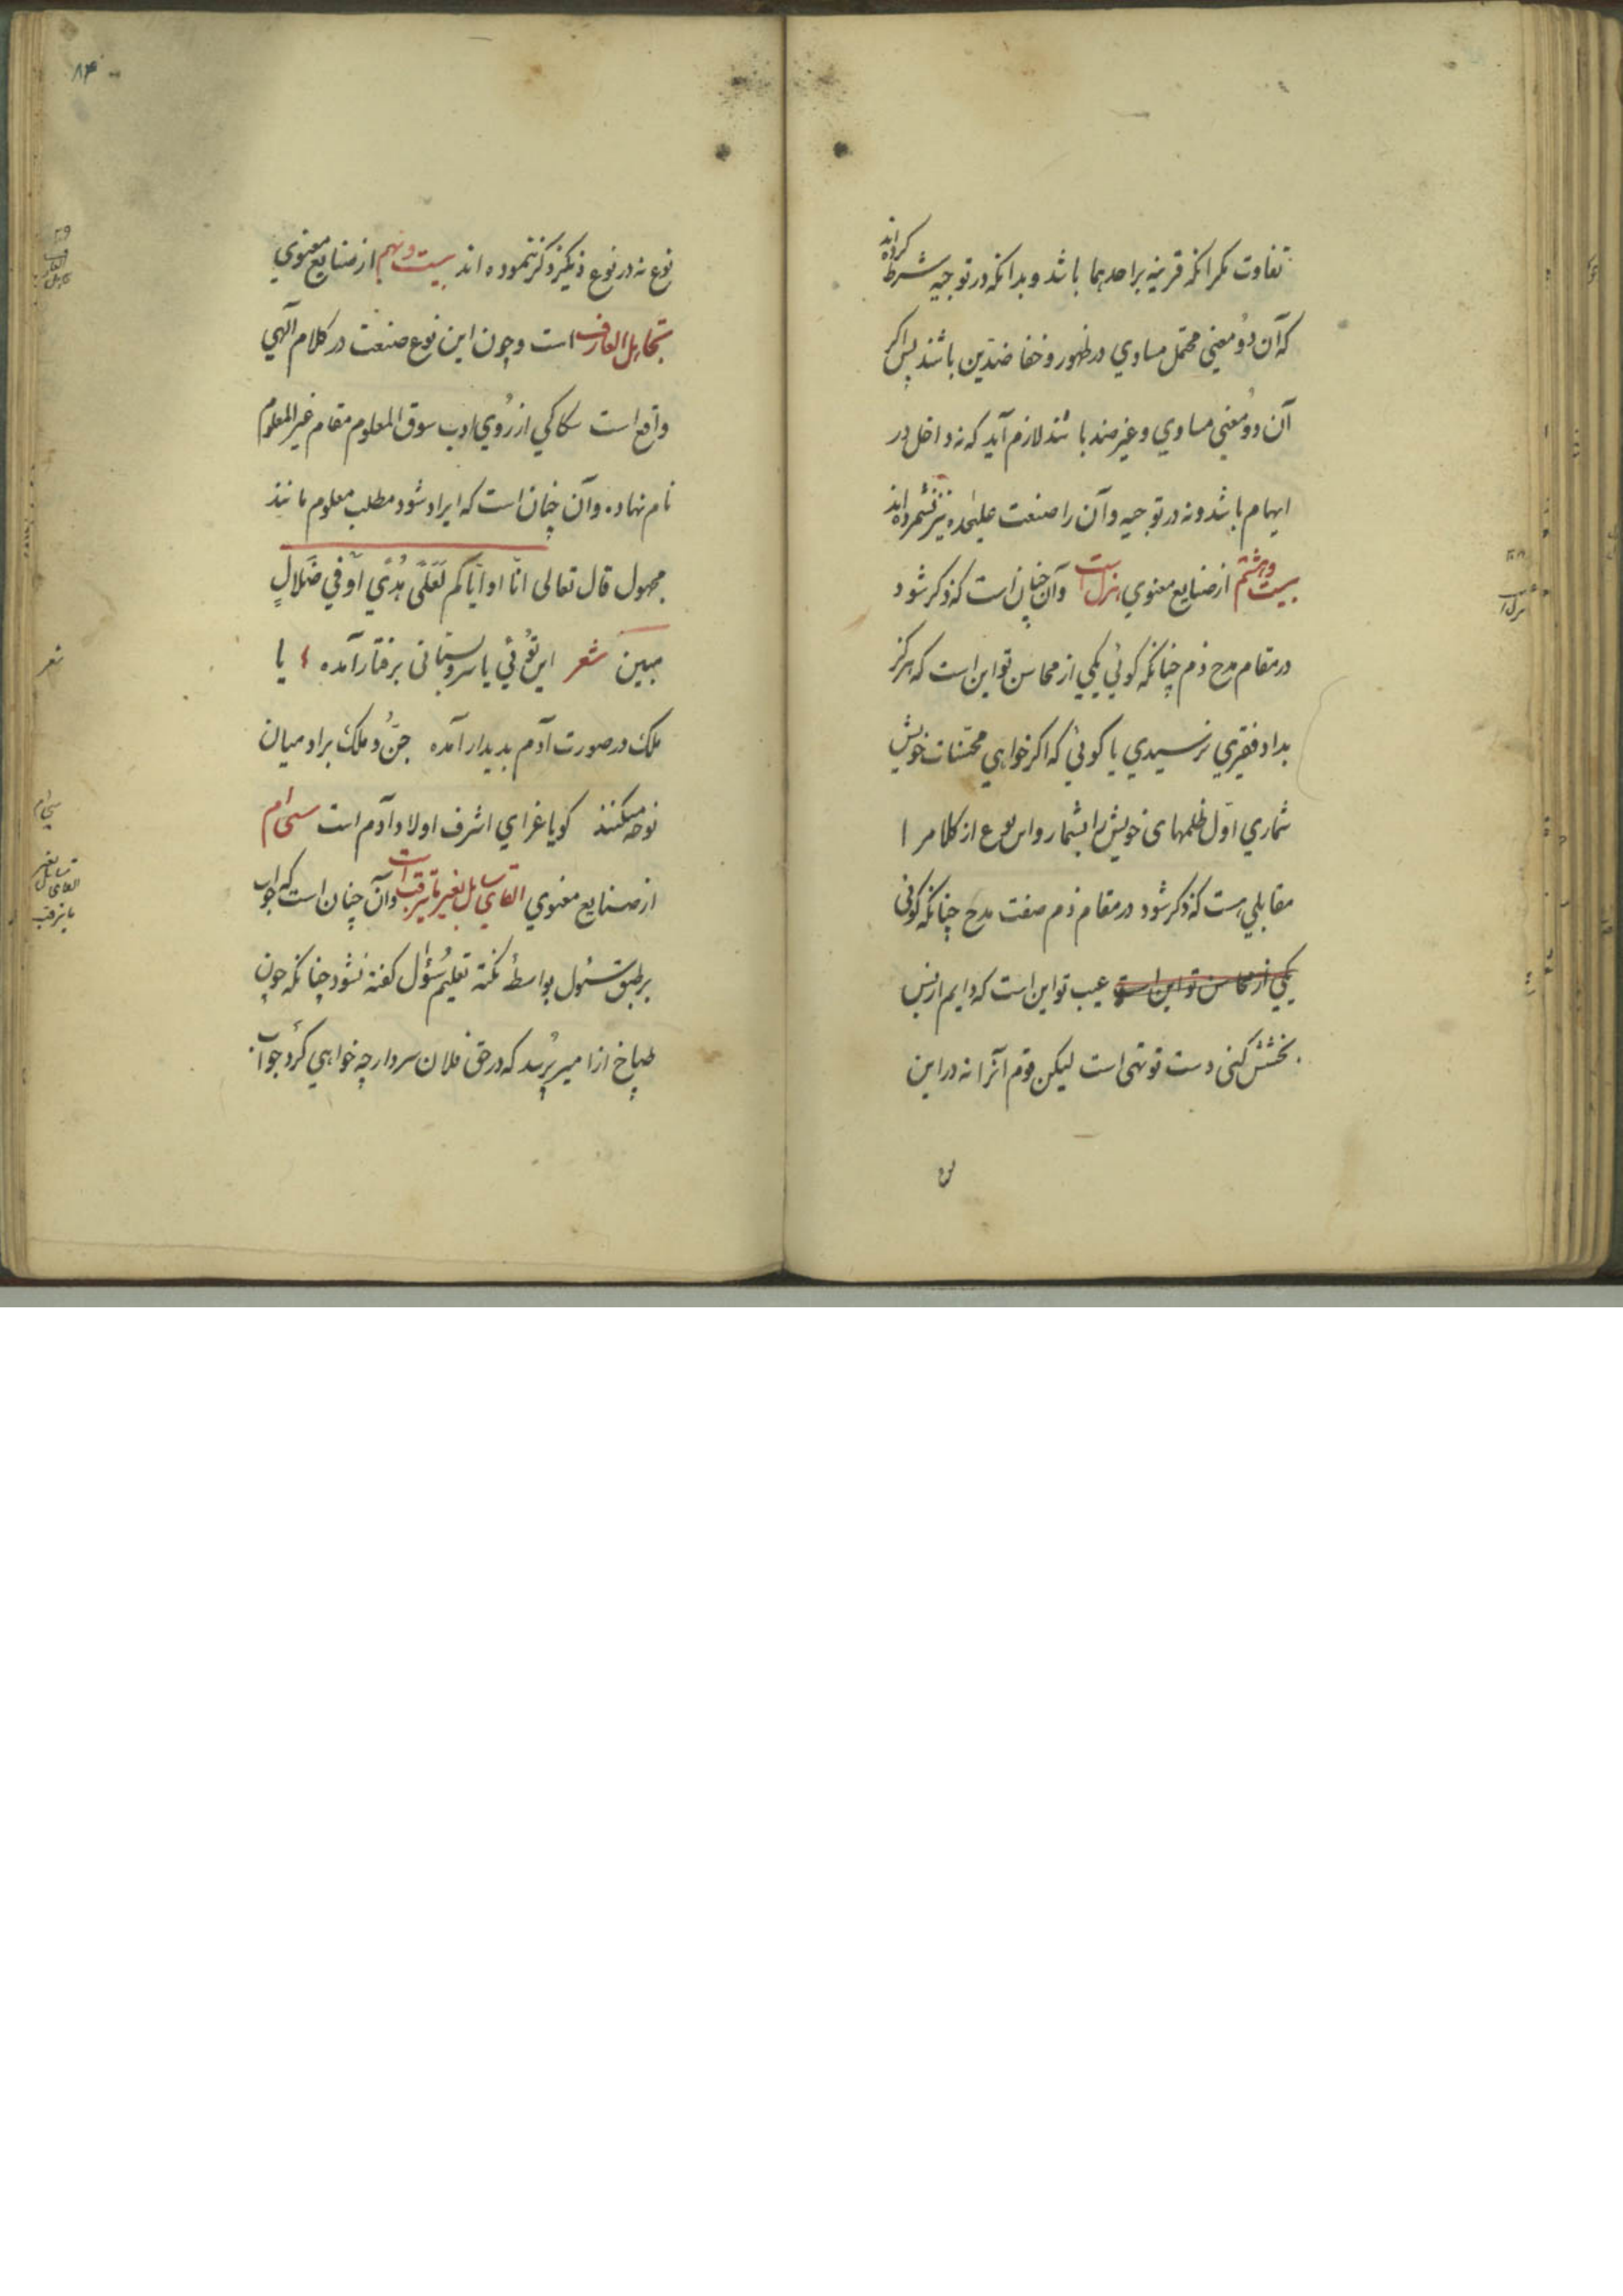 تفاوت مکر انکه قرینه بر احدهما باشد و بدانکه در توجیه شرط کرده‌اند
که آن دو معنی محتمل مساوي در ظهور و خفا ضدّین باشند پس اکر
آن دو معنی مساوي و غیر ضد باشند لازم آید که نه داخل در
ایهام باشد و نه در توجیه و آن را صنعت علیحده نیز نشمرده‌اند
بیست و هشتم از صنایع معنوي هزل است و آن چنان است که ذکر شود
در مقام مدح ذم چنانکه کوئي یکي از محاسن تو این است که هرکز
بداد فقیري نرسیدي یا کوئي که اکر خواهي محسّنات خویش
شماري اوّل ظلمهای خویش را بشمار و این نوع از کلام را
مقابلي هست که ذکر شود در مقام ذم صفت مدح چنانکه کوئی
یکي از محاسن تو این است عیب تو این است که دایم از بس
بخشش کنی دست تو تهی است لیکن قوم آنرا نه در این
نوع نه در نوع دیکر ذکر ننموده اند بیست و نهم از صنایع معنوي
تجاهل العارف است و چون این نوع صنعت در کلام الٓهي
واقع است سکاکي از رُوي ادب سوق المعلوم مقام غیر المعلوم
نام نهاده و آن چنان است که ایراد شود مطلب معلوم مانند
مجهول قال تعالی انّا او ایّاکم لَعَلٰی هُدًي اَوْ في ضَلَالٍ
مبین شعر این تُوئي یا سرو بستانی برفتار آمده یا
ملک در صورت آدم بدیدار آمده جنّ و ملک بر آدمیان
نوحه میکنند کویا عزاي اشرف اولاد آدم است سی‌اُم
از صنایع معنوي القاي سایل بغیر ما یترقب است و آن چنان است که جواب
بر طبق سئول بواسطهٔ نکته تعلیم سُؤال کفته نشود چنانکه چون
طباخ از امیر پُرسد که در حق فلان سردار چه خواهي کرد جواب
۸۴
۲۹
تجاهل العارف
شعر
سی‌اُم
القاي سایل بغیر ما یترقب
۲۸